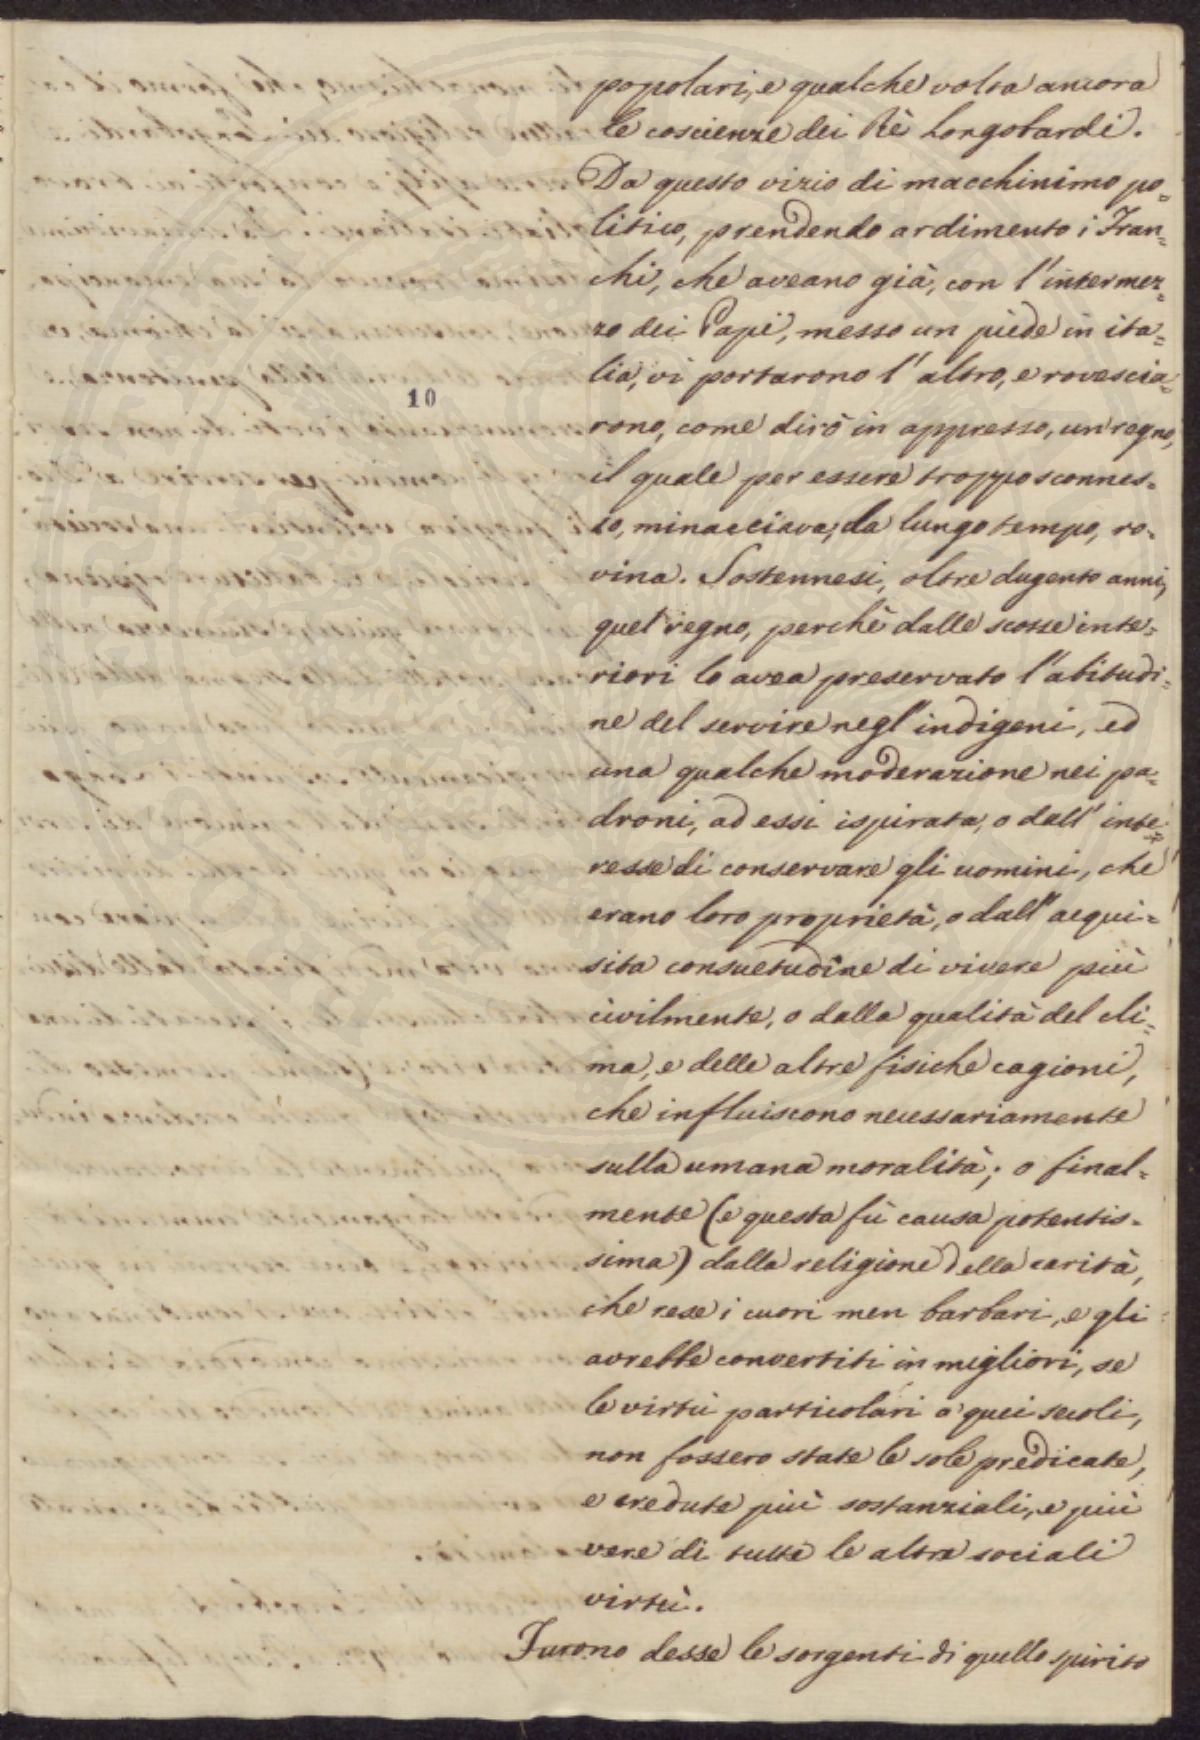 popolari, e qualche volta ancora
le coscienze dei Rè Longobardi.
Da questo vizio di macchinimo po=
litico, prendendo ardimento i Fran=
chi, che aveano già, con l'intermez=
zo dei Papi, messo un piede in ita=
lia, vi portarono l'altro, e rovescia=
10
rono, come dirò in appresso, un regno,
il quale per essere troppo sconnes=
so, minacciava, da lungo tempo, ro=
vina. Sostennesi, oltre dugento anni,
quel regno, perchè dalle scosse inte=
riori lo avea preservato l'abitudi=
ne del servire negl'indigeni, ed
una qualche moderazione nei pa=
droni, ad essi ispirata, o dall'inte=
resse di conservare gli uomini, che
erano loro proprietà, o dall'acqui=
sita consuetudine di vivere più
civilmente, o dalla qualità del cli=
ma, e delle altre fisiche cagioni,
che influiscono necessariamente
sulla umana moralità; o final=
mente (e questa fù causa potentis=
sima) dalla religione della carità,
che rese i cuori men barbari, e gli
avrebbe convertiti in migliori, se
le virtù particolari a quei secoli,
non fossero state le sole predicate,
e credute più sostanziali, e più
vere di tutte le altre sociali
virtù.
Furono desse le sorgenti di quello spirito